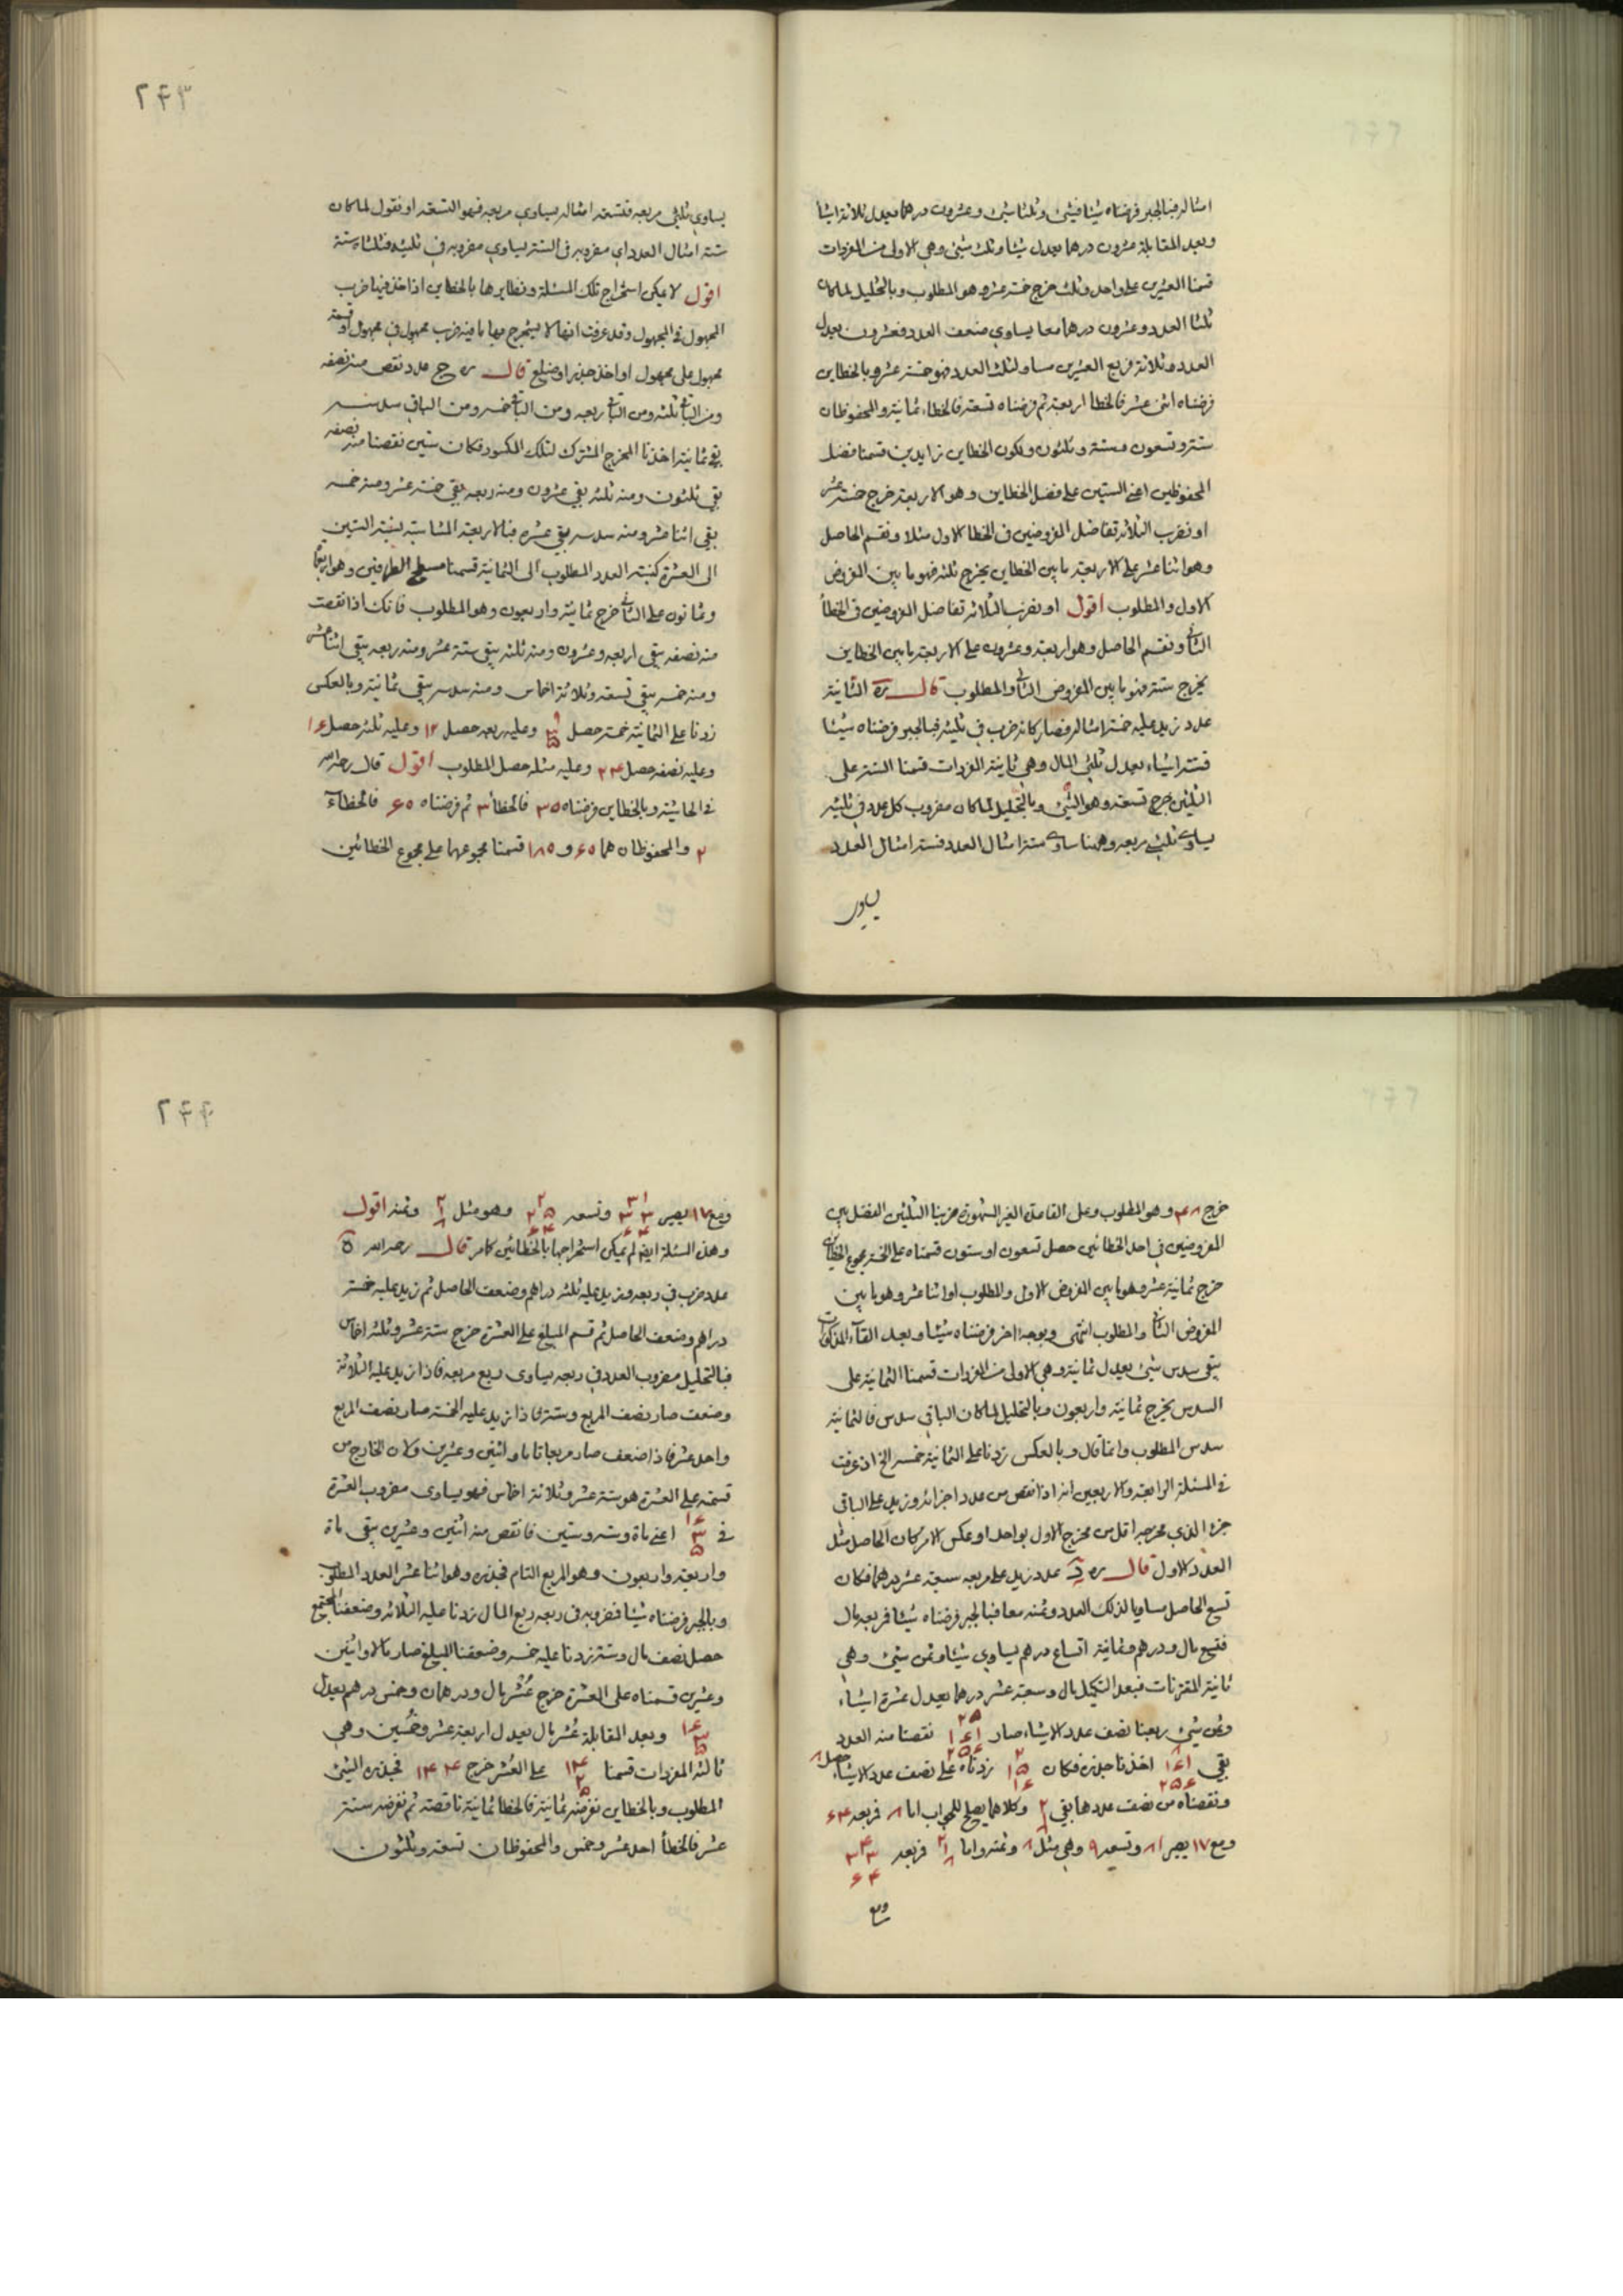 امثاله فبالجبر فرضناه شيئا فشئ وثلثا شئ وعشرون درهما يعدل ثلاثة اشيا
وبعد المقابلة عشرون درهما يعدل شيئا وثلث شئ وهي الاولى من المفردات
قسمنا العشرين على واحد وثلث خرج خمسة عشر وهو المطلوب وبالتحليل لما كان
ثلثا العدد وعشرون درهما معا يساوي ضعف العدد فعشرون يعدل
العدد وثلاثة فربع العشرين مساو لثلث العدد فهو خمسة عشر وبالخطاين
فرضناه اثنى عشر فالخطا اربعة ثم فرضناه تسعة فالخطاء ثمانية والمحفوظان
ستة وتسعون وستة وثلثون ولكون الخطاين زايدين قسمنا فضل
المحفوظين اعني الستين على فضل الخطاين وهو الاربعة خرج خمسة عشر
او نضرب الثلاثة تفاضل المفروضين في الخطا الاول مثلا ونقسم الحاصل
وهو اثنا عشر على الاربعة ما بين الخطاين يخرج ثلثة فهو ما بين المفروض
الاول والمطلوب اقول او نضرب الثلاثة تفاضل المفروضين في الخطأ
الثاني ونقسم الحاصل وهو اربعة وعشرون على الاربعة ما بين الخطاين
يخرج ستة فهو ما بين المفروض الثاني والمطلوب قال ره الثانية
عدد زيد عليه خمسة امثاله فصار كانه ضرب في ثلثيه فبالجبر فرضناه شيئا
فستة اشياء يعدل ثلثي المال وهي ثانية المفردات قسمنا الستة على
الثلثين خرج تسعة وهو الشئ وبالتحليل لما كان مضروب كل عدد في ثلثيه
يساوي ثلثي مربعه وههنا ساوى ستة امثال العدد فستة امثال العدد
يساوي
٢٤٣
يساوي ثلثي مربعه فتسعة امثاله يساوي مربعه فهو التسعة او نقول لما كان
ستة امثال العدد اي مضروبه في الستة يساوي مضروبه في ثلثيه فثلثاه ستة
اقول لا يمكن استخراج تلك المسئلة ونظايرها بالخطاين اذا اخذ فيها ضرب
المجهول في المجهول وقد عرفت انها لا يستخرج بها ما فيه ضرب مجهول في مجهول او قسمة
مجهول على مجهول او اخذ جذر او ضلع قال ره ج عدد نقص منه نصفه
ومن الباقي ثلثه ومن الباقي ربعه ومن الباقي خمسه ومن الباقي سدسه
بقي ثمانية اخذنا المخرج المشترك لتلك الكسور فكان ستين نقصنا منه نصفه
بقي ثلثون ومنه ثلثه بقي عشرون ومنه ربعه بقي خمسة عشر ومنه خمسه
بقى اثنا عشر ومنه سدسه بقي عشرة فبالاربعة المتناسبة نسبة الستين
الى العشرة كنسبة العدد المطلوب الى الثمانية قسمنا مسطح الطرفين وهو اربعمأة
وثمانون على الثاني خرج ثمانية واربعون وهو المطلوب فانك اذا نقصت
منه نصفه بقى اربعة وعشرون ومنه ثلثه يبقى ستة عشر ومنه ربعه يبقى اثنا عشر
ومنه خمسه يبقى تسعة وثلاثة اخماس ومنه سدسه يبقى ثمانية وبالعكس
زدنا على الثمانية خمسه حصل ٩ ٣ ٥ وعليه ربعه حصل ١٢ وعليه ثلثه حصل ١٦
وعليه نصفه حصل ٢٤ وعليه مثله حصل المطلوب اقول قال رحمه الله
في الحاشية وبالخطاين فرضناه ٣٠ فالخطأ ٣ ثم فرضناه ٦٠ فالخطاء
٢ والمحفوظان هما ٦٠ و ١٨٠ قسمنا مجموعهما على مجموع الخطائين
خرج ٤٨ وهو المطلوب وعلى القاعدة الغير المشهورة ضربنا الثلثين الفضل بين
المفروضين في احد الخطائين حصل تسعون او ستون قسمناه على الخمسة مجموع الخطاين
خرج ثمانية عشر وهو ما بين المفروض الاول والمطلوب او اثنا عشر وهو ما بين
المفروض الثاني والمطلوب انتهى وبوجه اخر فرضناه شيئا وبعد القاء المذكورات
يبقى سدس شئ يعدل ثمانية وهي الاولى من المفردات قسمنا الثمانية على
السدس يخرج ثمانية واربعون وبالتحليل لما كان الباقي سدس فالثمانية
سدس المطلوب وانما قال وبالعكس زدنا على الثمانية خمسه الخ اذ عرفت
في المسئلة الرابعة والاربعين انه اذا نقص من عدد اجزائه وزيد على الباقي
جزء الذي مخرجه اقل من مخرج الاول بواحد او عكس الامر كان الحاصل مثل
العدد الاول قال ره د عدد زيد على مربعه سبعة عشر درهما فكان
تسع الحاصل مساويا لذلك العدد وثمنه معا فبالجبر فرضناه شيئا فربعه مال
فتسع مال ودرهم وثمانية اتساع درهم يساوي شيئا وثمن شئ وهي
ثانية المقترنات فبعد التكميل مال وسبعة عشر درهما يعدل عشرة اشياء
وثمن شئ ربعنا نصف عدد الاشياء صار ٢٥ ١٦١ ٢٥٦ نقصنا منه العدد
بقي ٨ ١٦١ ٢٥٦ اخذنا جذره فكان ٢ ١٥ ١٦ زدناه على نصف عدد الاشياء حصل ٨
ونقصناه من نصف عددها بقي ٢ ١ ٨ وكلاهما يصلح للجواب اما ٨ فربعه ٦٤
ومع ١٧ يصير ٨١ وتسعه ٩ وهي مثل ٨ وثمنه واما ٢ ١ ٨ فربعه ٤ ٣٣ ٦٤
ومع
٢٤٤
ومع ١٧ يصير ٢١ ٣٣ ٦٤ وتسعه ٢ ٢٥ ٦٤ وهو مثل ٢ ١ ٨ وثمنه اقول
وهذه المسئلة ايضا لم يمكن استخراجها بالخطائين كما مر قال رحمه الله ه
عدد ضرب في ربعه وزيد عليه ثلثة دراهم وضعف الحاصل ثم زيد عليه خمسة
دراهم وضعف الحاصل ثم قسم المبلغ على العشرة خرج ستة عشر وثلثة اخماس
فبالتحليل مضروب العدد في ربعه يساوى ربع مربعه فاذا زيد عليه الثلاثة
وضعف صار نصف المربع وستة فاذا زيد عليه الخمسة صار نصف المربع
واحد عشر فاذا ضعف صار مربعا تاما واثنين وعشرين وكان الخارج من
قسمته على العشرة هو ستة عشر وثلاثة اخماس فهو يساوى مضروب العشرة
في ١٦ ٣ ٥ اعني مأة وستة وستين فانقص منه اثنين وعشرين يبقى مأة
واربعة واربعون وهو المربع التام فجذره وهو اثنا عشر العدد المطلوب
وبالجبر فرضناه شيئا فضربه في ربعه ربع المال زدنا عليه الثلاثة وضعفنا المجتمع
حصل نصف مال وستة زدنا عليه خمسة وضعفنا المبلغ صار مالا واثنين
وعشرين قسمناه على العشرة خرج عُشر مال ودرهمان وخمس درهم يعدل
١٦ ٣ ٥ وبعد المقابلة عُشر مال يعدل اربعة عشر وخمسين وهي
ثالثة المفردات قسمنا ١٤ ٢ ٥ على العُشر خرج ١٤٤ فجذره الشئ
المطلوب وبالخطاين نفرضه ثمانية فالخطا ثمانية ناقصة ثم نفرضه ستة
عشر فالخطأ احد عشر وخمس والمحفوظان تسعة وثلثون